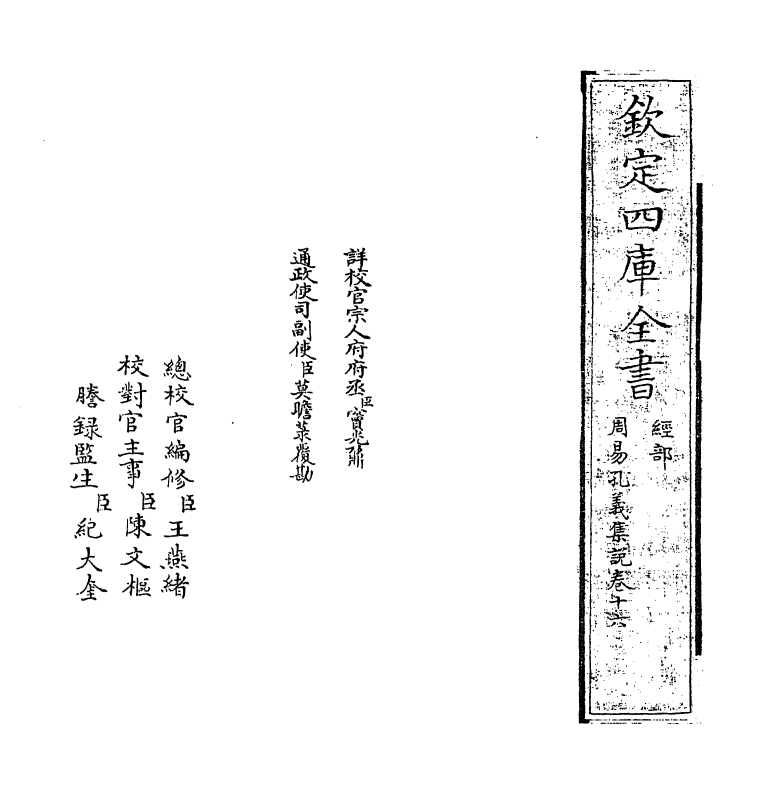 欽定四庫全書
經部
周易孔義集說卷十六
詳校官宗人府府丞臣竇光鼐
通政使司副使臣莫瞻菉覆勘
總校官編修臣王燕緒
校對官主事臣陳文樞
謄錄監生臣紀大奎